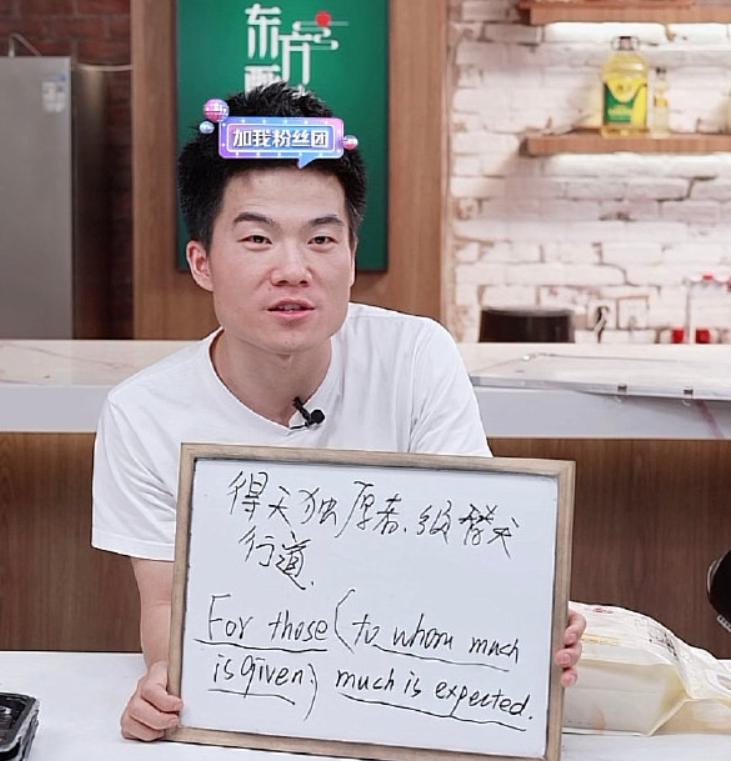 东方
加我粉丝团
得天独厚者,须替天
行道.
For those (to whom much
is given) much is expected.